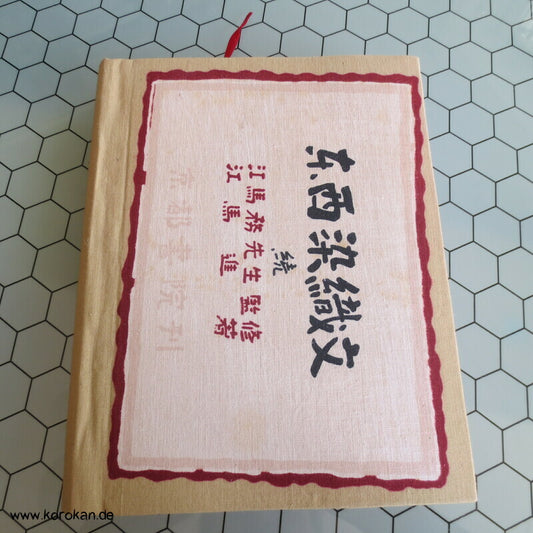 东西染織文
続
江馬務先生監修
江馬進著
京都書院刊
www.korokan.de